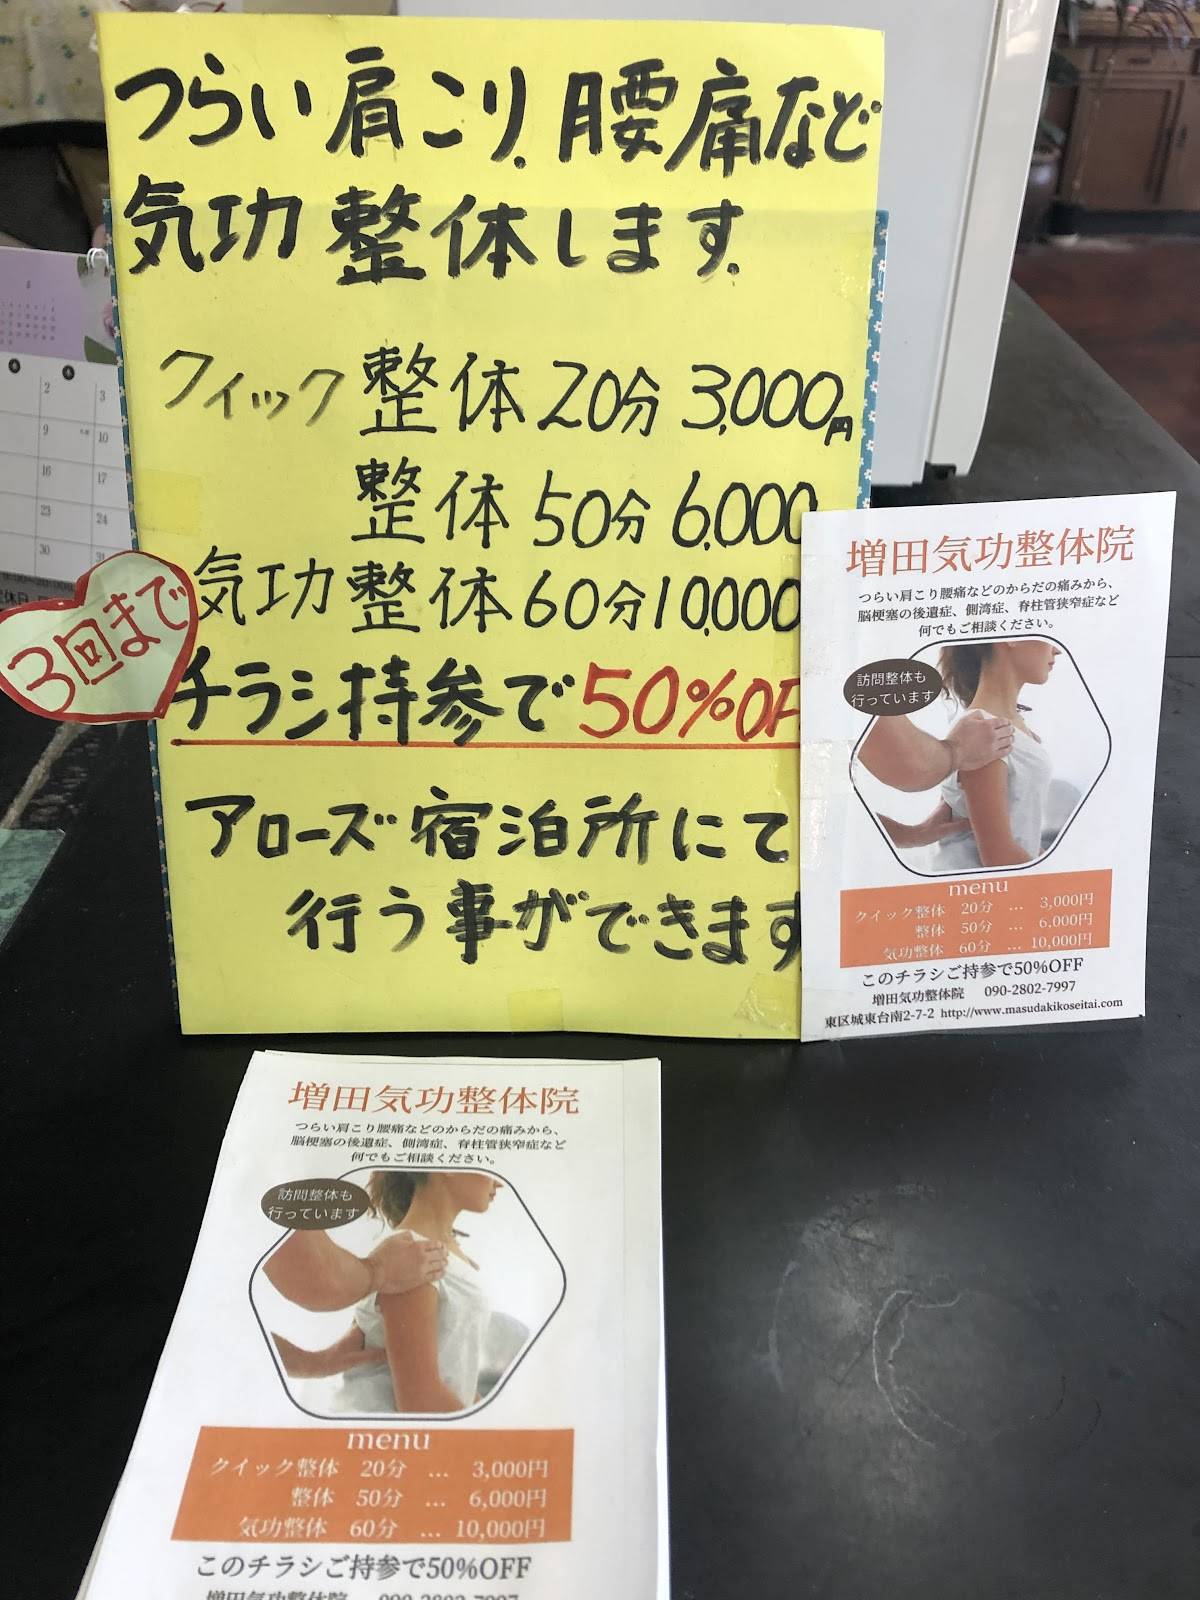 つらい肩こり、腰痛など
気功整体します.
クイック整体20分3,000円
整体50分6,000
気功整体60分10,000
3回まで
チラシ持参で50%OF
アローズ宿泊所にて
行う事ができます
増田気功整体院
つらい肩こり腰痛などのからだの痛みから、
脳梗塞の後遺症、側湾症、脊柱管狭窄症など
何でもご相談ください。
訪問整体も
行っています
menu
クイック整体 20分 … 3,000円
整体 50分 … 6,000円
気功整体 60分 … 10,000円
このチラシご持参で50%OFF
増田気功整体院 090-2802-7997
東区城東台南2-7-2 http://www.masudakikoseitai.com
増田気功整体院
つらい肩こり腰痛などのからだの痛みから、
脳梗塞の後遺症、側湾症、脊柱管狭窄症など
何でもご相談ください。
訪問整体も
行っています
menu
クイック整体 20分 … 3,000円
整体 50分 … 6,000円
気功整体 60分 … 10,000円
このチラシご持参で50%OFF
増田気功整体院 090-2802-7997
2 3
9 10
16 17
23 24
30 31